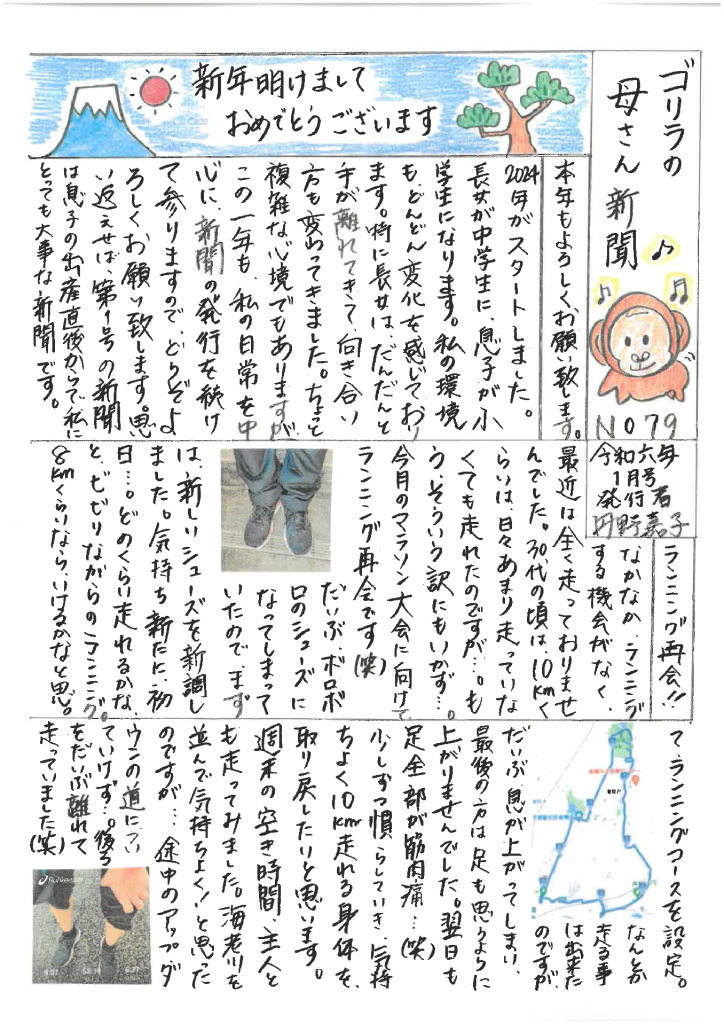 ゴリラの
母さん新聞
No79
令和六年
1月号
発行者
円野嘉子
新年明けまして
おめでとうございます
本年もよろしくお願い致します。
2024年がスタートしました。
長女が中学生に、息子が小
学生になります。私の環境
も、どんどん変化を感じており
ます。特に長女は、だんだんと
手が離れてきて、向き合い
方も変わってきました。ちょっと
複雑な心境でもありますが、
この一年も、私の日常を中
心に、新聞の発行を続け
て参りますので、どうぞよ
ろしくお願い致します。思
い返えせば、第1号の新聞
は息子の出産直後からで私に
とっても大事な新聞です。
ランニング再会!!
なかなか、ランニング
する機会がなく、
最近は全く走っておりませ
んでした。30代の頃は、10kmく
らいは、日々あまり走っていな
くても走れたのですが…。も
う、そういう訳にもいかず…。
今月のマラソン大会に向けて
ランニング再会です(笑)
だいぶ、ボロボ
ロのシューズに
なってしまって
いたので、まず
は、新しいシューズを新調し
ました。気持ち新たに、初
日…。どのくらい走れるかな、
と、ビビりながらのランニング。
8kmくらいなら、いけるかなと思。
て、ランニングコースを設定。
なんとか
走る事
は出来た
のですが、
だいぶ息が上がってしまい、
最後の方は足も思うように
上がりませんでした。翌日も
足全部が筋肉痛…(笑)
少しずつ慣らしていき、気持
ちよく10km走れる身体を、
取り戻したいと思います。
週末の空き時間、主人と
も走ってみました。海老川を
並んで気持ちよく!と思った
のですが…途中のアップ・ダ
ウンの道につい
ていけず…。後ろ
をだいぶ離れて
走っていました(笑)
Runkeeper